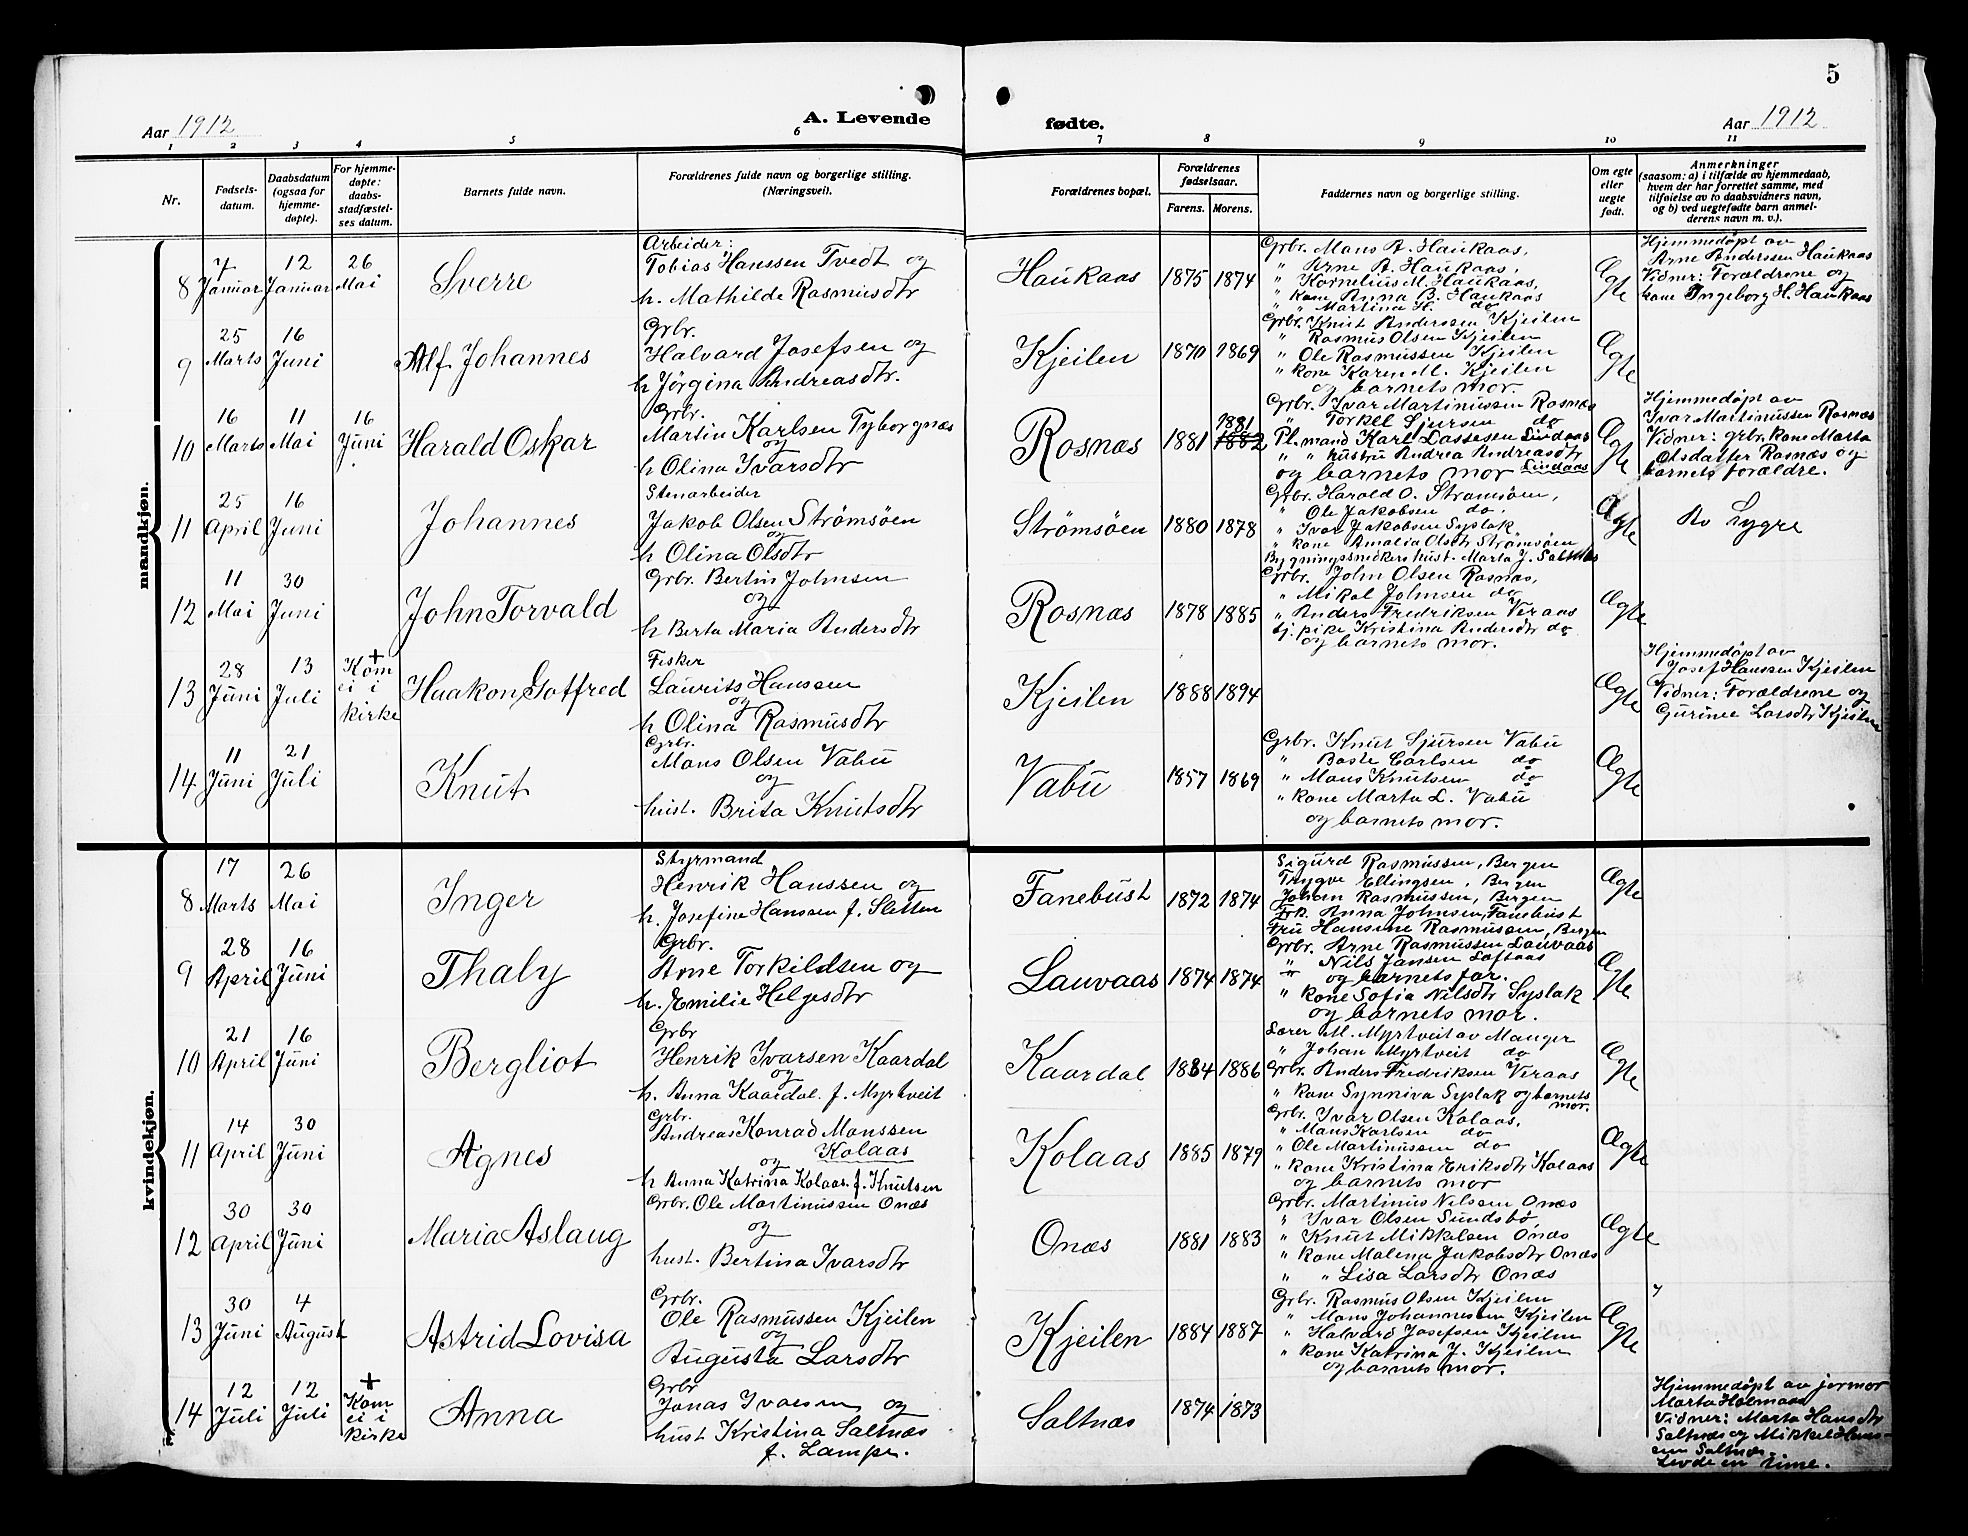 5
Aar 1912
A. Levende
fødte.
Aar 1912
1 2 3 4 5 6 7 8 9 10 11
Nr.
Fødsels-
datum.
Daabsdatum
(ogsaa for
hjemme-
døpte).
For hjemme-
døpte:
daabs-
stadfæstel-
ses datum.
Barnets fulde navn.
Forældrenes fulde navn og borgerlige stilling.
(Næringsvei).
Forældrenes bopæl.
Forældrenes
fødselsaar.
Farens. Morens.
Faddernes navn og borgerlige stilling.
Om egte
eller
uegte
født.
Anmerkninger
(saasom: a) i tilfælde av hjemmedaab,
hvem der har forrettet samme, med
tilføielse av to daabsvidners navn,
og b) ved uegtefødte barn anmel-
derens navn m. v.).
mandkjøn.
8
7
Januar
12
Januar
26
Mai
Sverre
Arbeider:
Tobias Hanssen Tvedt og
h. Mathilde Rasmusdtr
Haukaas
1875 1874
Grbr. Mans A. Haukaas,
" Arne A. Haukaas,
" Kornelius M. Haukaas,
" kone Anna B. Haukaas
" Martina H. do
Ægte
Hjemmedøpt av
Arne Anderssen Haukaas
Vidner: Forældrene og
kone Ingeborg H. Haukaas
9
25
Marts
16
Juni
Alf Johannes
Grbr.
Halvard Josefsen og
h Jörgina Andreasdtr.
Kjeilen
1870 1869
Grbr. Knut Anderssen Kjeilen
" Rasmus Olsen Kjeilen
" Ole Rasmussen Kjeilen
" kone Karen M. Kjeilen
og barnets mor.
Ægte
10
16
Marts
11
Mai
16
Juni
Harald Oskar
Grbr.
Martin Karlsen Tyborgnæs
og
h Olina Ivarsdtr
Rosnæs
1881 1881
1882
Grbr. Ivar Martinussen Rosnæs
" Torkel Sjursen do
Pl. mand Karl Lassesen Lindaas
" " hustru Andrea Andreasdtr
og barnets mor Lindaas
Ægte
Hjemmedöpt av
Ivar Martinussen Rosnæs
Vidner: grbr. kone Marta
Olsdatter Rosnæs og
barnets forældre.
11
25
April
16
Juni
Johannes
Stenarbeider
Jakob Olsen Strömsöen
og
h Olina Olsdtr
Strömsöen
1880 1878
Grbr. Harald O. Strömsöen,
" Ole Jakobsen do.
" Ivar Jakobsen Syslak
" kone Amalia Olsdtr Strömsöen
Bygningssnekers hust. Marta J. Saltnæs
Ægte
Av Lygre
12
11
Mai
30
Juni
John Torvald
Grbr. Bertin Johnsen
og
h Berta Maria Andersdtr
Rosnæs
1878 1885
Grbr. John Olsen Rosnæs,
" Mikal Johnsen do
" Anders Fredriksen Veraas
tj. pike Kristina Andersdtr do
og barnets mor.
Ægte
13
28
Juni
13
Juli
+
Kom
ei i
kirke
Haakon Goffred
Fisker
Laurits Hanssen
og
h Olina Rasmusdtr
Kjeilen
1888 1894
Ægte
Hjemmedøpt av
Josef Hanssen Kjeilen
Vidner: Forældrene og
Gurinee Larsdtr Kjeilen
14
11
Juni
21
Juli
Knut
Grbr.
Mans Olsen Vabu
og
hust. Brita Knutsdtr
Vabu
1857 1869
Grbr. Knut Sjursen Vabu
" Baste Carlsen do
" Mans Knutsen do
" kone Marta L. Vabu
og barnets mor.
Ægte
kvindekjøn.
8
17
Marts
26
Mai
Inger
Styrmand
Henrik Hanssen og
h. Josefine Hanssen f. Sletten
Fanebust
1872 1874
Sigurd Rasmussen, Bergen
Trygve Ellingsen, Bergen
Johan Rasmussen, Bergen
Frk. Anna Johnsen, Fanebust
Fru Hansine Rasmussen, Bergen
Ægte
9
28
April
16
Juni
Thaly
Grbr.
Arne Torkildsen og
h. Emilie Helgesdtr
Lauvaas
1874 1874
Grbr. Arne Rasmussen Lauvaas
" Nils Jansen Loftaas
" og barnets far.
" kone Sofia Nilsdtr Syslak
og barnets mor.
Ægte
10
21
April
16
Juni
Bergliot
Grbr
Henrik Ivarsen Kaardal
og
h. Anna Kaardal f. Myrtveit
Kaardal
1884 1886
Lærer M. Myrtveit av Manger
" Johan Myrtveit do
Grbr. Anders Fredriksen Veraas
" kone Synniva Syslak og barnets
mor.
Ægte
11
14
April
30
Juni
Agnes
Grbr.
Andreas Konrad Monssen
og Kolaas
h Anna Katrina Kolaas f. Knutsen
Kolaas
1885 1879
Grbr. Ivar Olsen Kolaas,
" Mans Karlsen do
" Ole Martinussen do
" kone Kristina Eriksdtr Kolaas
og barnets mor
Ægte
12
30
April
30
Juni
Maria Aslaug
Grbr. Ole Martinussen Onæs
og
hust. Bertina Ivarsdtr
Onæs
1881 1883
Grbr. Martinus Nilsen Onæs
" Ivar Olsen Sundsbø,
" Knut Mikkelsen Onæs
" kone Malena Jakobsdtr Onæs
" " Lisa Larsdtr Onæs
Ægte
13
30
Juni
4
August
Astrid Lovisa
Grbr.
Ole Rasmussen Kjeilen
og
Augusta Larsdtr
Kjeilen
1884 1887
Grbr. Rasmus Olsen Kjeilen
" Mans Johannessen Kjeilen
" Halvard Josefsen Kjeilen
" kone Katrina J. Kjeilen
og barnets mor.
Ægte
14
12
Juli
12
Juli
+
Kom
ei i
kirke
Anna
Grbr
Jonas Ivarsen og
hust Kristina Saltnæs
f. Lampe.
Saltnæs
1874 1873
Hjemmedøpt av jormor
Marta Holmaad
Vidner: Marta Hansdtr
Saltnæs og Mikkel Hans-
sen Saltnæs.
Levde en time.